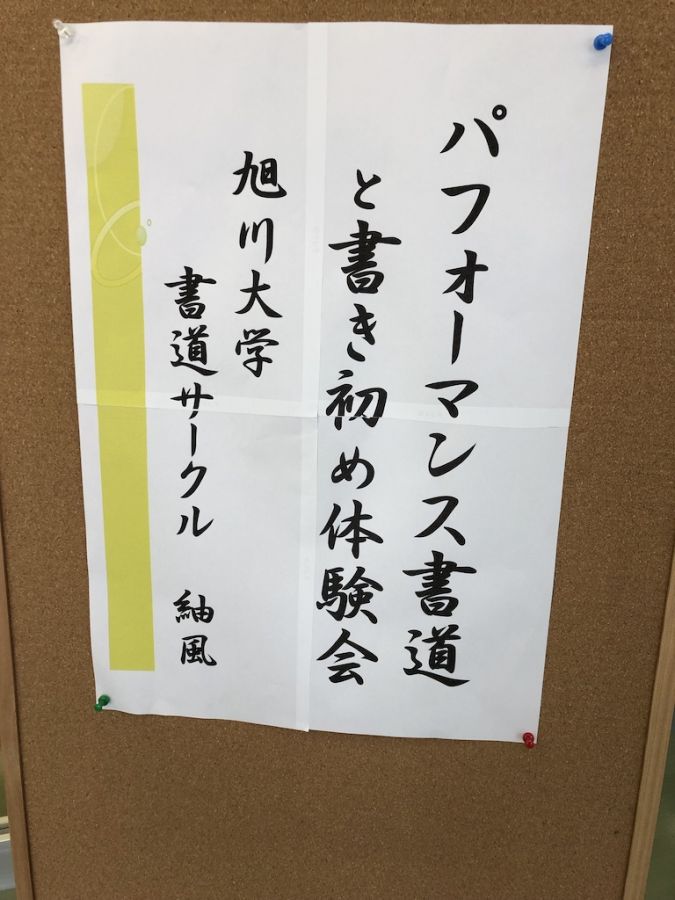 パフォーマンス書道
と書き初め体験会
旭川大学
書道サークル　紬風